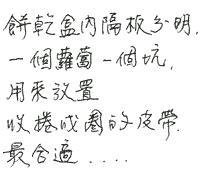 餅乾盒內隔板分明,
一個蘿蔔一個坑,
用來放置
收捲成圈的皮帶.
最合適....